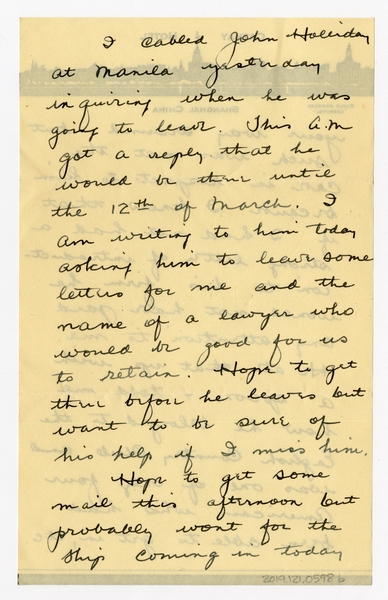 I cabled John Holliday
at Manila yesterday
inquiring when he was
going to leave. This A.M
got a reply that he
would be there until
the 12th of March. I
am writing to him today
asking him to leave some
letters for me and the
name of a lawyer who
would be good for us
to retain. Hope to get
there before he leaves but
want to be sure of
his help if I miss him.
Hope to get some
mail this afternoon but
probably wont for the
ship coming in today
2019.121.0598 b